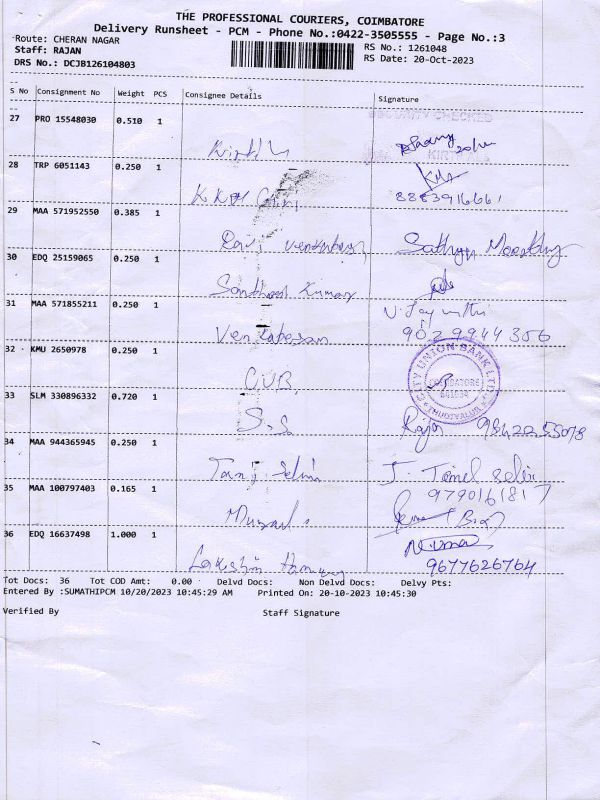 THE PROFESSIONAL COURIERS, COIMBATORE
Delivery Runsheet - PCM - Phone No.:0422-3505555 - Page No.:3
Route: CHERAN NAGAR
RS No.: 1261048
Staff: RAJAN
RS Date: 20-Oct-2023
DRS No.: DCJB126104803
S No Consignment No Weight PCS Consignee Details Signature
27 PRO 15548030 0.510 1
SECURITY CHECKED
28 TRP 6051143 0.250 1
8883916661
29 MAA 571952550 0.385 1
Sathya Moorthy
30 EDQ 25159065 0.250 1
Santhosh Kumar
31 MAA 571855211 0.250 1
Venkatesan
9029944356
32 KMU 2650978 0.250 1
C.U.B.
CITY UNION BANK LTD
COIMBATORE
641034
THUDIYALUR
33 SLM 330896332 0.720 1
S.S Rajan 9842255078
34 MAA 944365945 0.250 1
Tamil Selvi J. Tamil Selvi
9790161817
35 MAA 100797403 0.165 1
36 EDQ 16637498 1.000 1
9677626764
Tot Docs: 36 Tot COD Amt: 0.00 Delvd Docs: Non Delvd Docs: Delvy Pts:
Entered By :SUMATHIPCM 10/20/2023 10:45:29 AM Printed On: 20-10-2023 10:45:30
Verified By Staff Signature